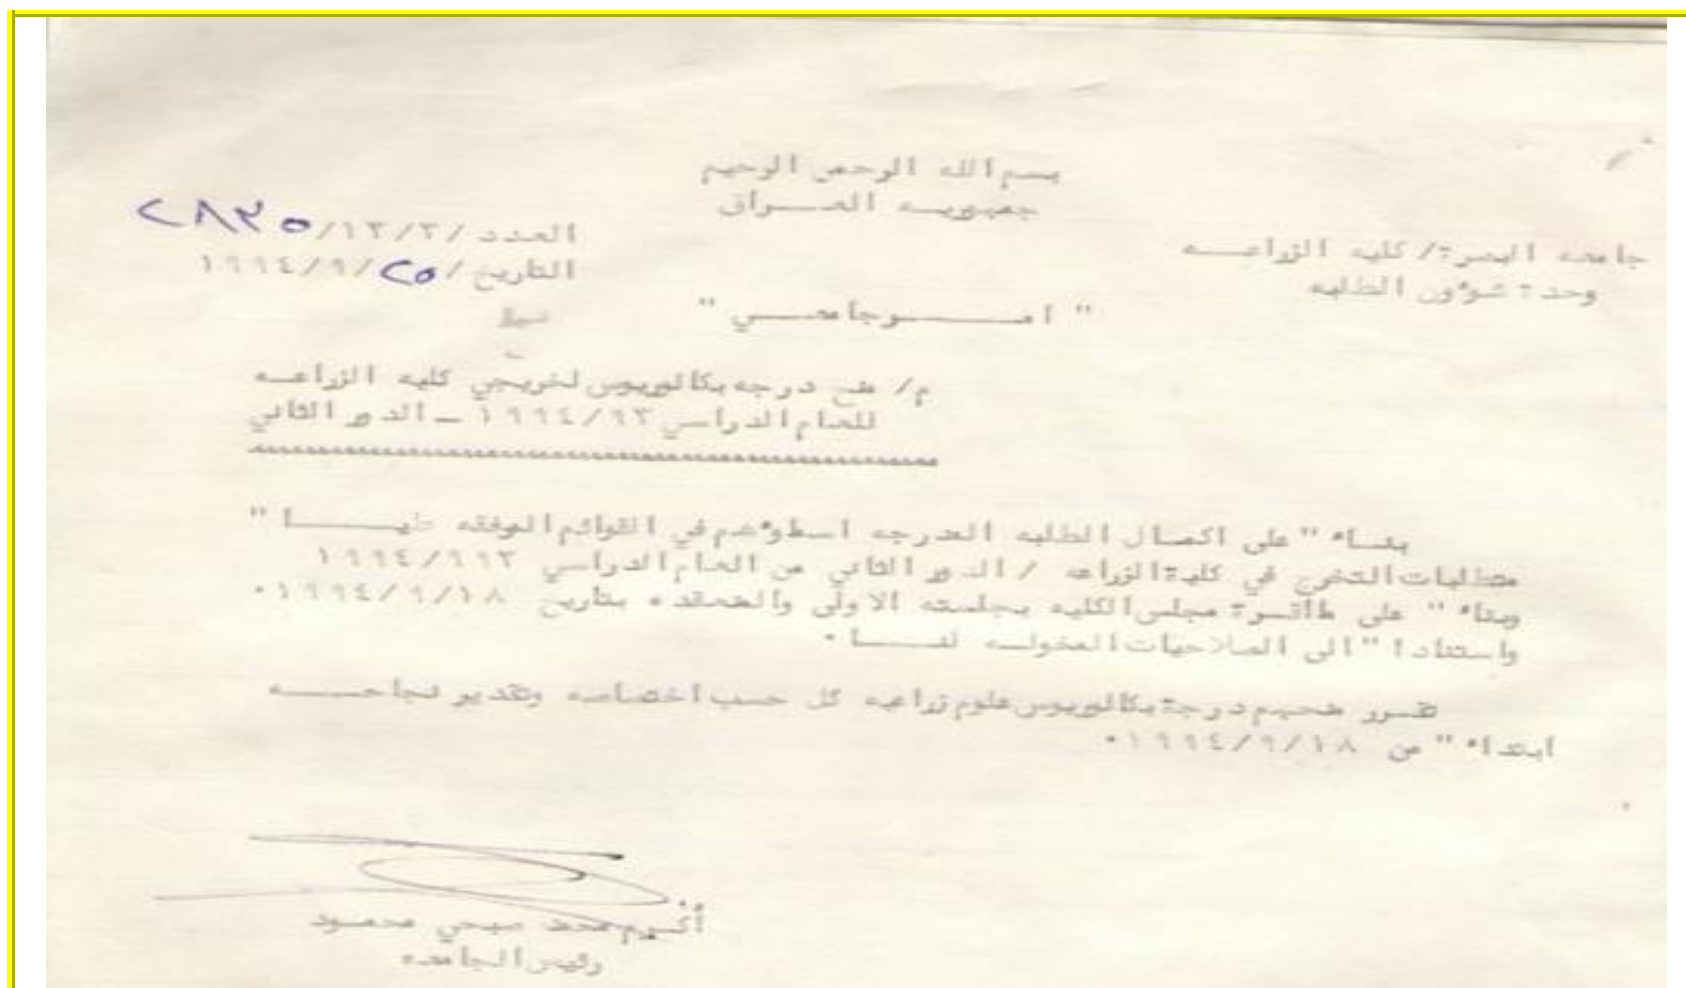 بسم الله الرحمن الرحيم
جمهوريـه العـــراق
جامعه البصرة/ كليه الزراعــه
وحدة شوؤن الطلبه
العدد /٣/١٣/ ٢٨٣٥
التاريخ /٢٥ /١٩٩٤/٩
" امـــــــرجامعـــي "
م/ منح درجه بكالوريوس لخريجي كليه الزراعــه
للعام الدراسي ١٩٩٤/٩٣ ــ الدور الثاني
بنــاء" على اكمـال الطلبه المدرجه اسماؤهم في القوائم المرفقه طيـــــا"
متطلبات التخرج في كلية الزراعه / الدور الثاني من العام الدراسي ١٩٩٤/٩٩٣
وبناء" على مااقــرة مجلس الكليه بجلسته الاولى والمنعقده بتاريخ ١٩٩٤/٩/١٨٠
واستنادا" الى الصلاحيات المخولــه لنـــا ٠
تقــرر منحهم درجة بكالوريوس علوم زراعيه كل حسب اختصاصه وتقدير نجاحـــه
ابتداء" من ١٩٩٤/٩/١٨٠
أكــرم محمد صبحي محمــود
رئيس الجامعه